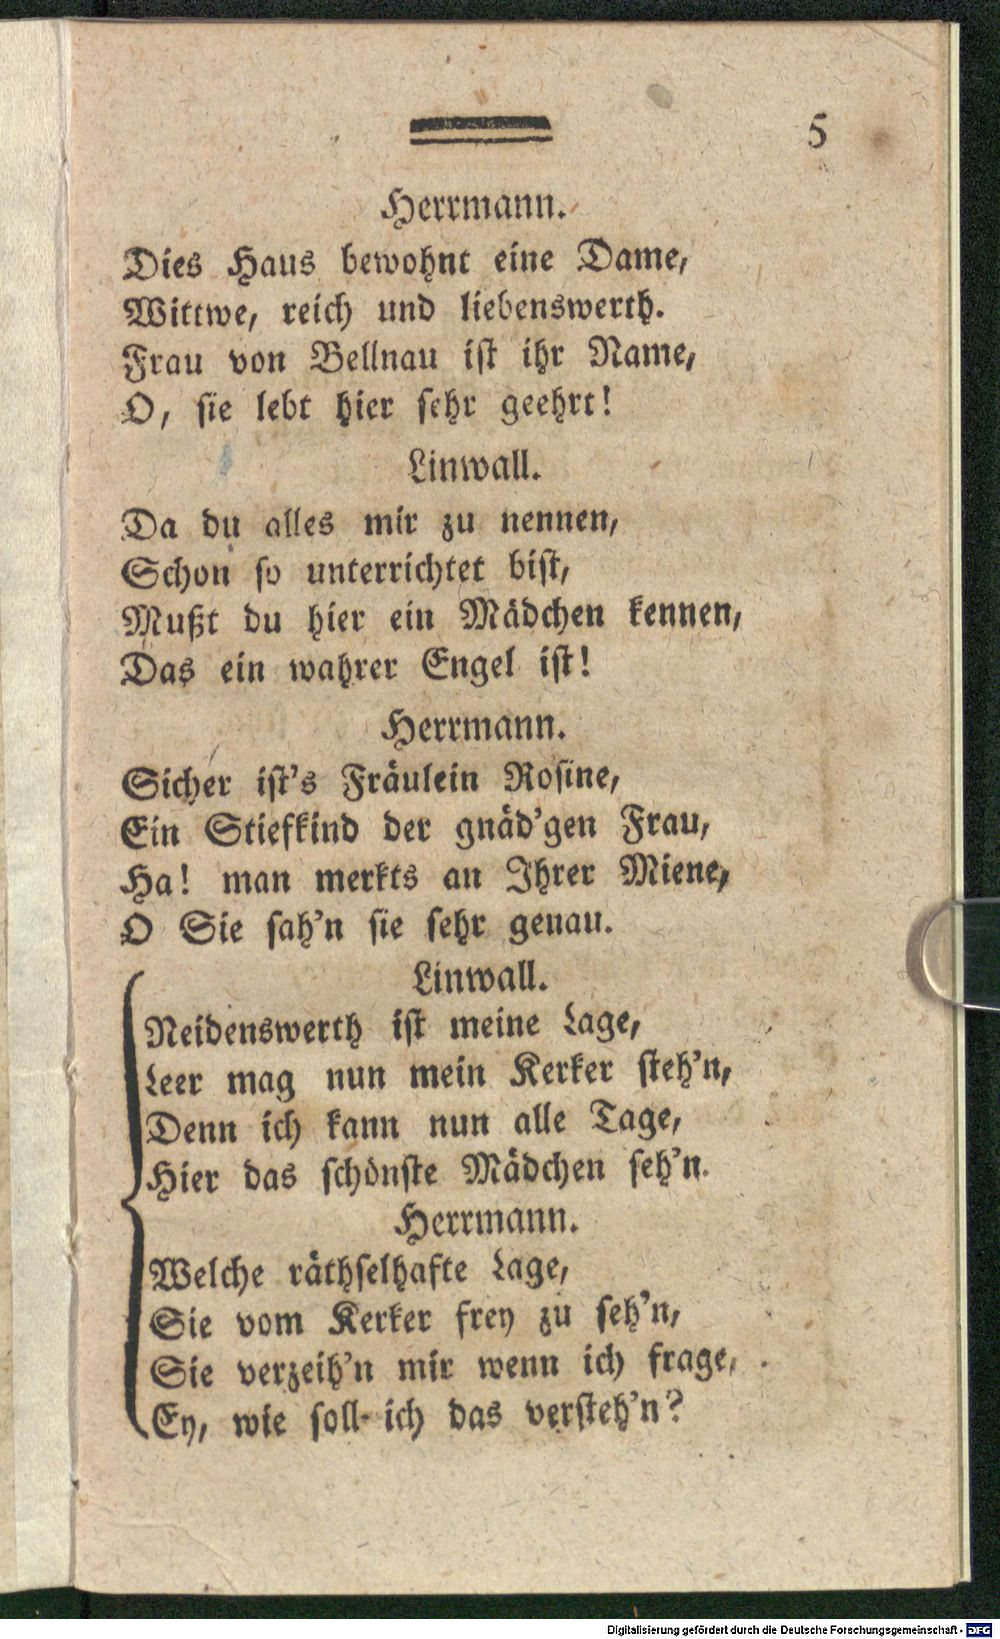 5
Herrmann.
Dies Haus bewohnt eine Dame,
Wittwe, reich und liebenswerth.
Frau von Bellnau ist ihr Name,
O, sie lebt hier sehr geehrt!
Linwall.
Da du alles mir zu nennen,
Schon so unterrichtet bist,
Mußt du hier ein Mädchen kennen,
Das ein wahrer Engel ist!
Herrmann.
Sicher ist's Fräulein Rosine,
Ein Stiefkind der gnäd'gen Frau,
Ha! man merkts an Ihrer Miene,
O Sie sah'n sie sehr genau.
Linwall.
Neidenswerth ist meine Lage,
Leer mag nun mein Kerker steh'n,
Denn ich kann nun alle Tage,
Hier das schönste Mädchen seh'n.
Herrmann.
Welche räthselhafte Lage,
Sie vom Kerker frey zu seh'n,
Sie verzeih'n mir wenn ich frage,
Ey, wie soll ich das versteh'n?
Digitalisierung gefördert durch die Deutsche Forschungsgemeinschaft - DFG